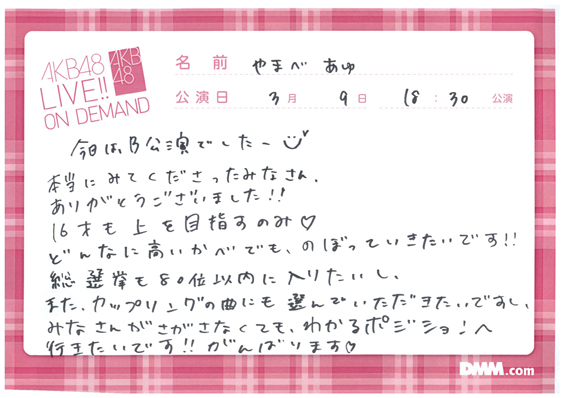 AKB48
LIVE!!
ON DEMAND
AKB
48
名前 やまべ あゆ
公演日 3月 9日 18:30 公演
今日は、B公演でしたー
本当にみてくださったみなさん、
ありがとうございました!!
16才も上を目指すのみ♡
どんなに高いかべでも、のぼっていきたいです!!
総選挙も80位以内に入りたいし、
また、カップリングの曲にも選んでいただきたいですし、
みなさんがさがさなくても、わかるポジションへ
行きたいです!! がんばります♡
DMM.com